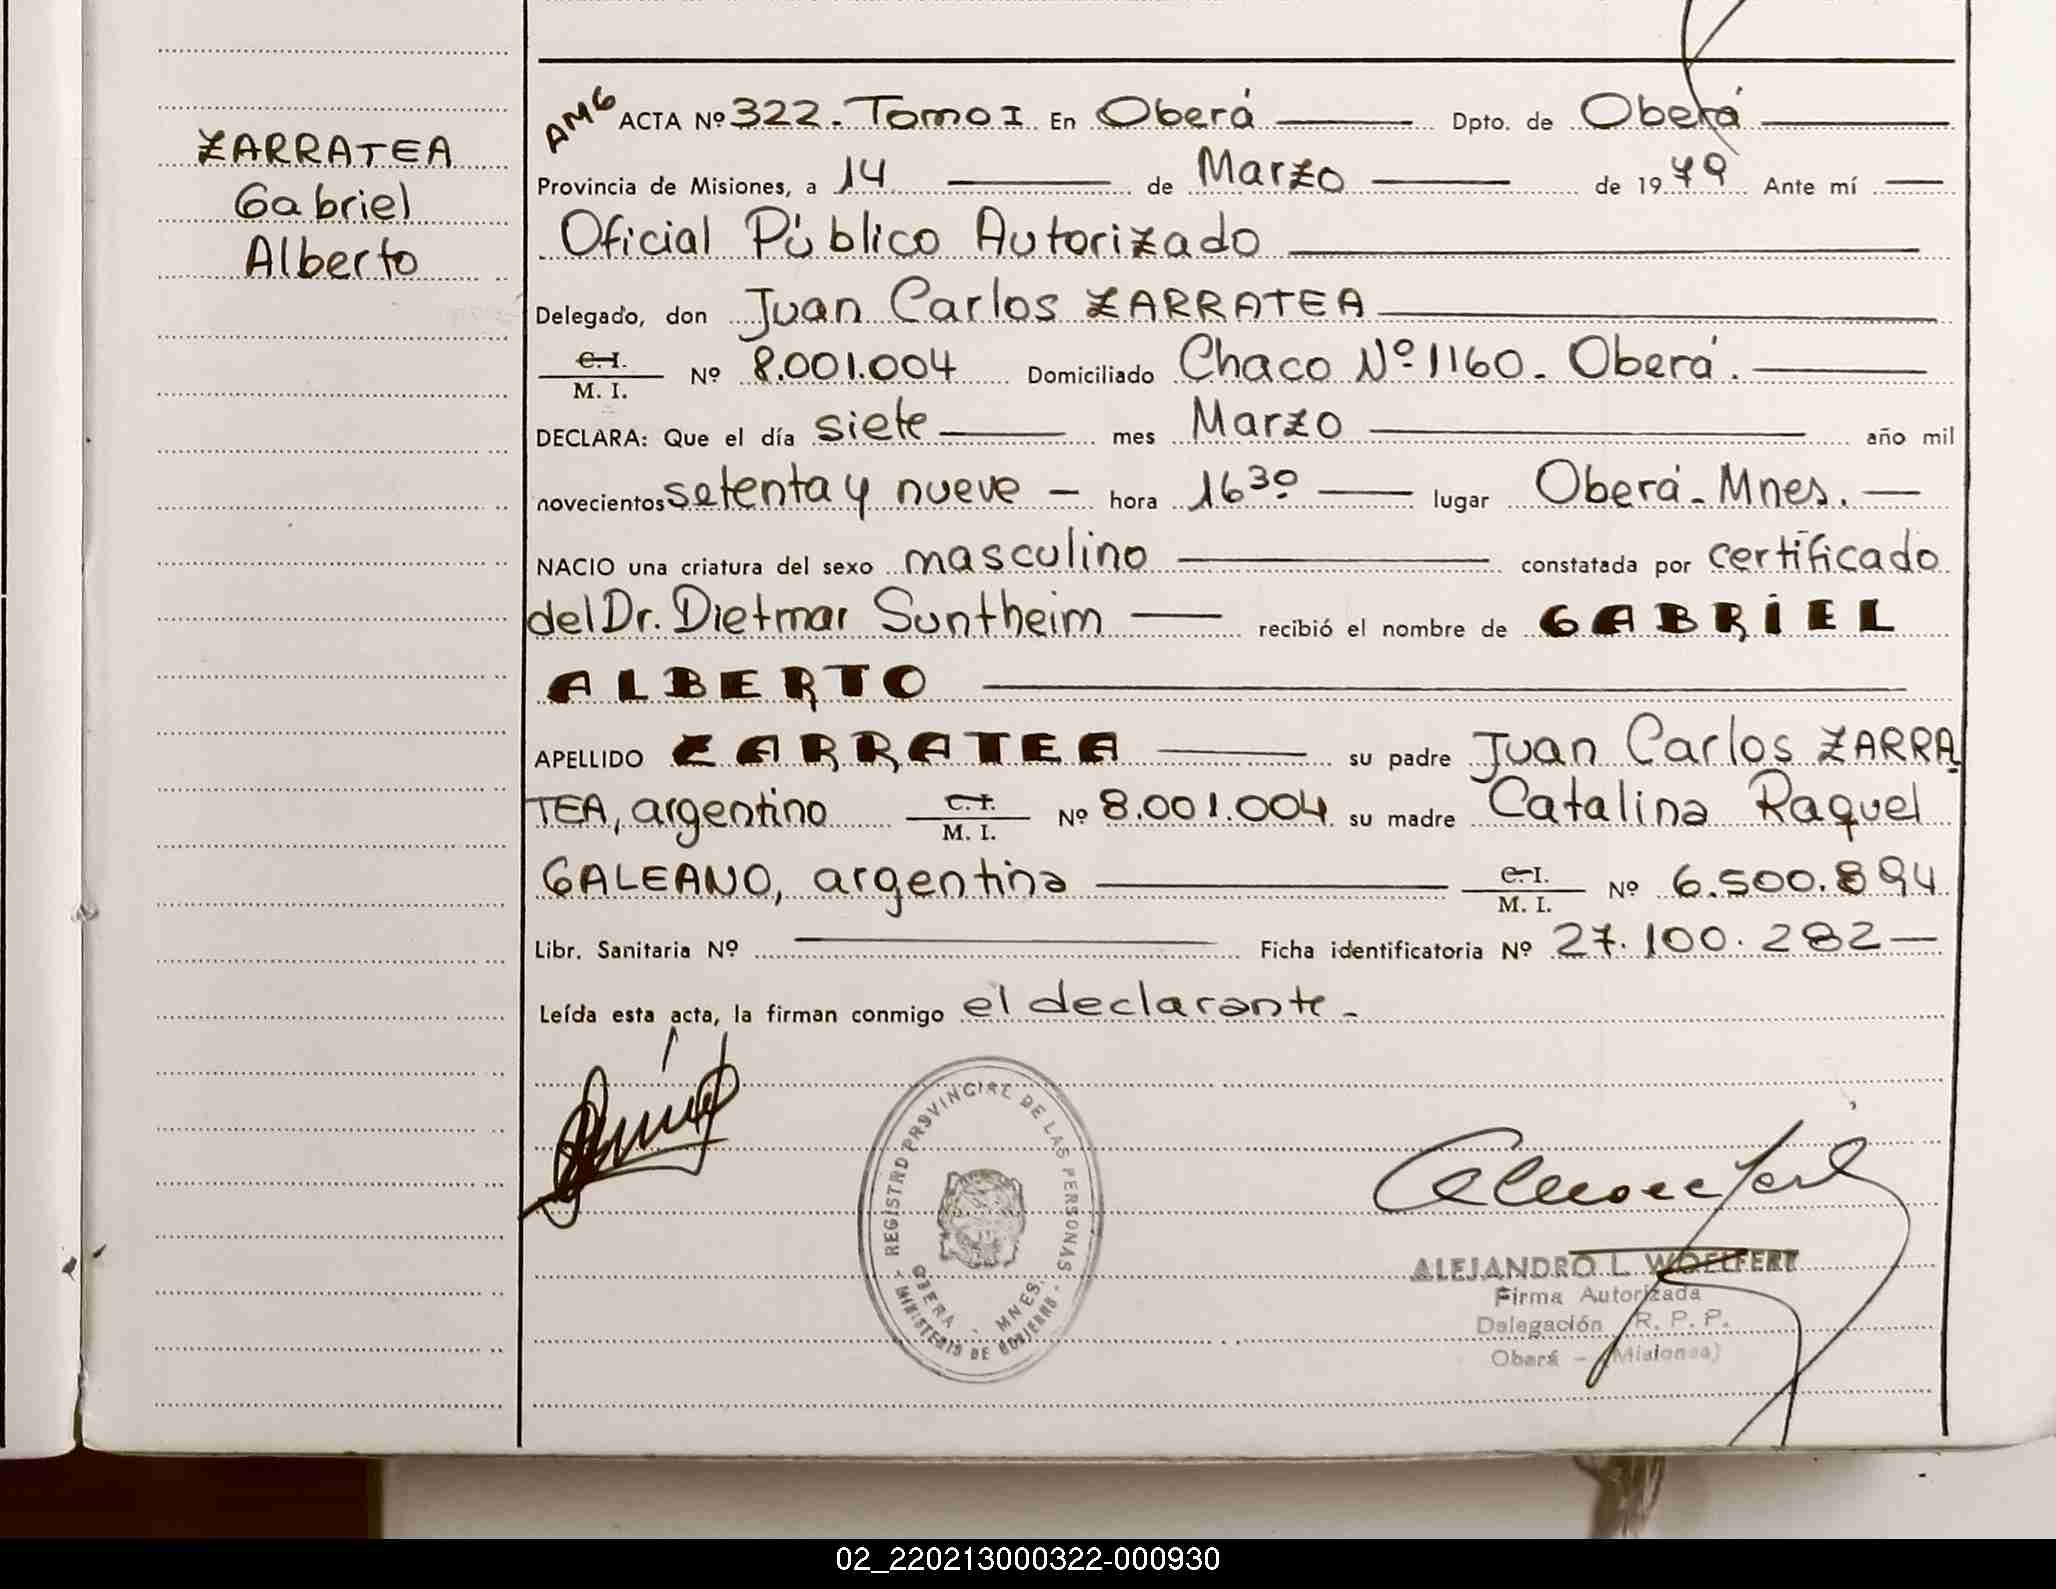 ZARRATEA
Gabriel
Alberto
AMG ACTA Nº 322. Tomo I En Oberá Dpto. de Oberá
Provincia de Misiones, a 14 de Marzo de 1979 Ante mí
Oficial Público Autorizado
Delegado, don Juan Carlos ZARRATEA
C. I.
M. I. Nº 8.001.004 Domiciliado Chaco Nº 1160. Oberá.
DECLARA: Que el día siete mes Marzo año mil
novecientos setenta y nueve hora 16³⁰ lugar Oberá - Mnes.
NACIO una criatura del sexo masculino constatada por certificado
del Dr. Dietmar Suntheim recibió el nombre de GABRIEL
ALBERTO
APELLIDO ZARRATEA su padre Juan Carlos ZARRA
TEA, argentino C. I. M. I. Nº 8.001.004 su madre Catalina Raquel
GALEANO, argentina C. I. M. I. Nº 6.500.894
Libr. Sanitaria Nº Ficha identificatoria Nº 27.100.282
Leída esta acta, la firman conmigo el declarante.
REGISTRO PROVINCIAL DE LAS PERSONAS
OBERÁ - MNES.
MINISTERIO DE GOBIERNO
ALEJANDRO L. WOELFERT
Firma Autorizada
Delegación R. P. P.
Oberá - (Misiones)
02_220213000322-000930